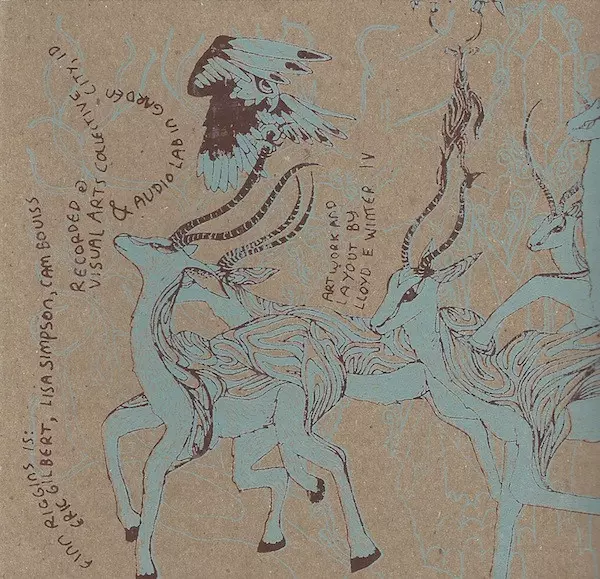 FINN RIGGINS IS:
ERIC GILBERT, LISA SIMPSON, CAM BOUISS
RECORDED @
VISUAL ARTS COLLECTIVE
& AUDIO LAB IN GARDEN CITY, ID
ARTWORK AND
LAYOUT BY
LLOYD E WINTER IV